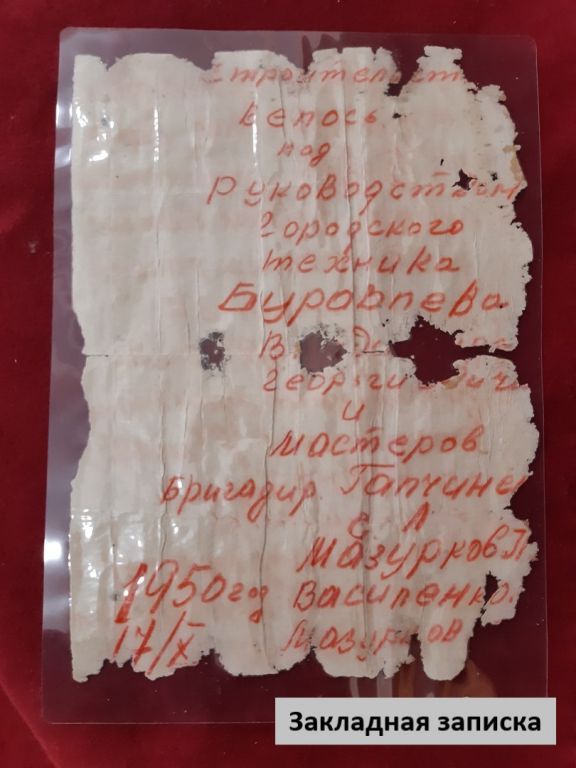 Строительст
велось
под
руководством
городского
техника
Буровлева
Георги
и
мастеров
бригадир Гапчине
с Л
Мазурков П
1950 год Василенко.
17/X Мазурков
Закладная записка